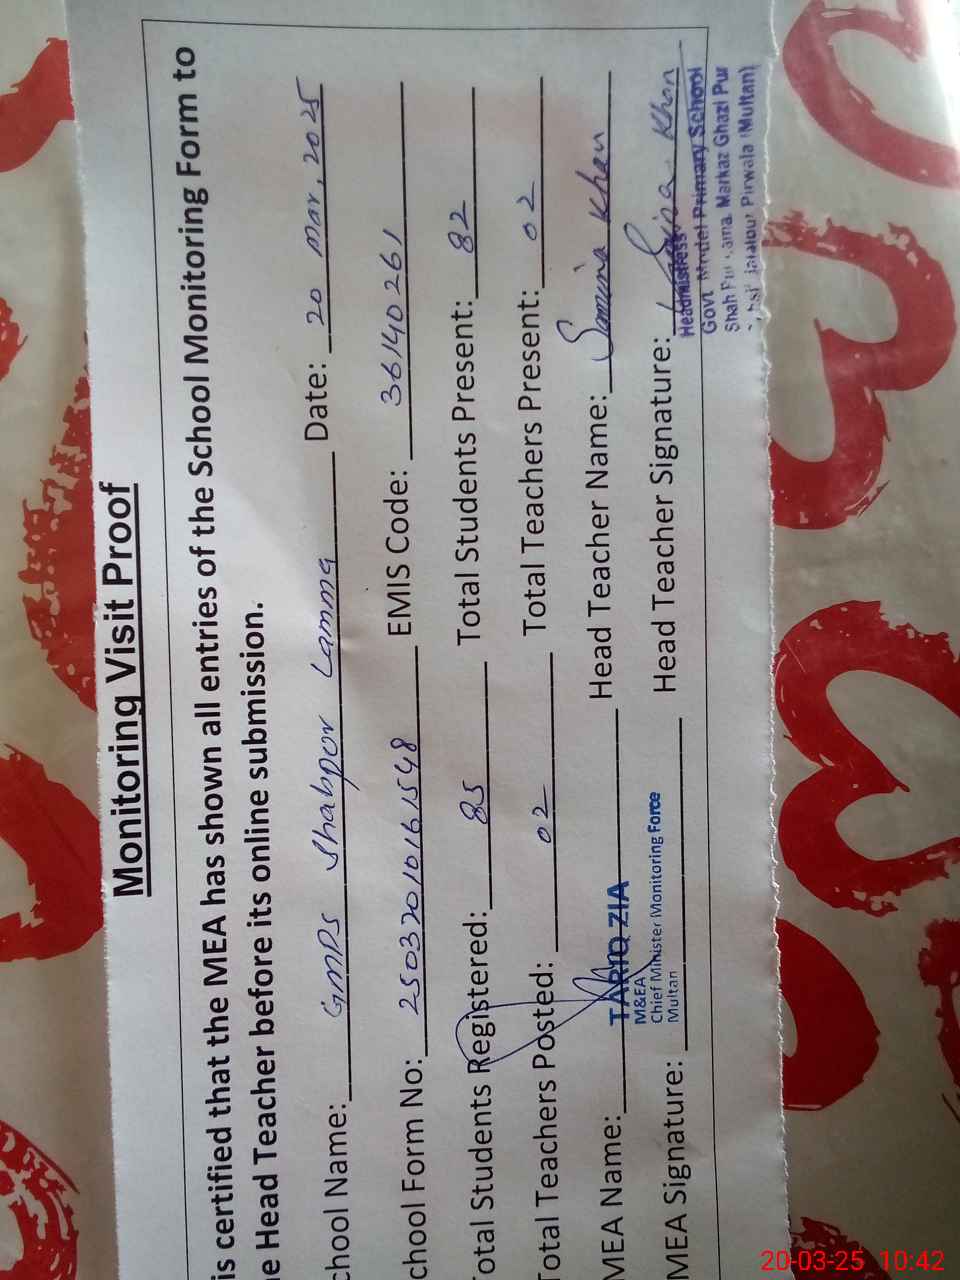 Monitoring Visit Proof
is certified that the MEA has shown all entries of the School Monitoring Form to
e Head Teacher before its online submission.
chool Name: GMPS Shahpur Lamma Date: 20 Mar, 2025
chool Form No: 250320101616548 EMIS Code: 36140261
otal Students Registered: 85 Total Students Present: 82
otal Teachers Posted: 02 Total Teachers Present: 02
MEA Name: TARIQ ZIA Head Teacher Name: Samina Khan
M&EA
Chief Minister Monitoring Force
Multan
MEA Signature: Head Teacher Signature: Samina Khan
Headmistress
Govt Model Primary School
Shah Pur Lama Markaz Ghazi Pur
Jalalpur Pirwala (Multan)
20-03-25 10:42